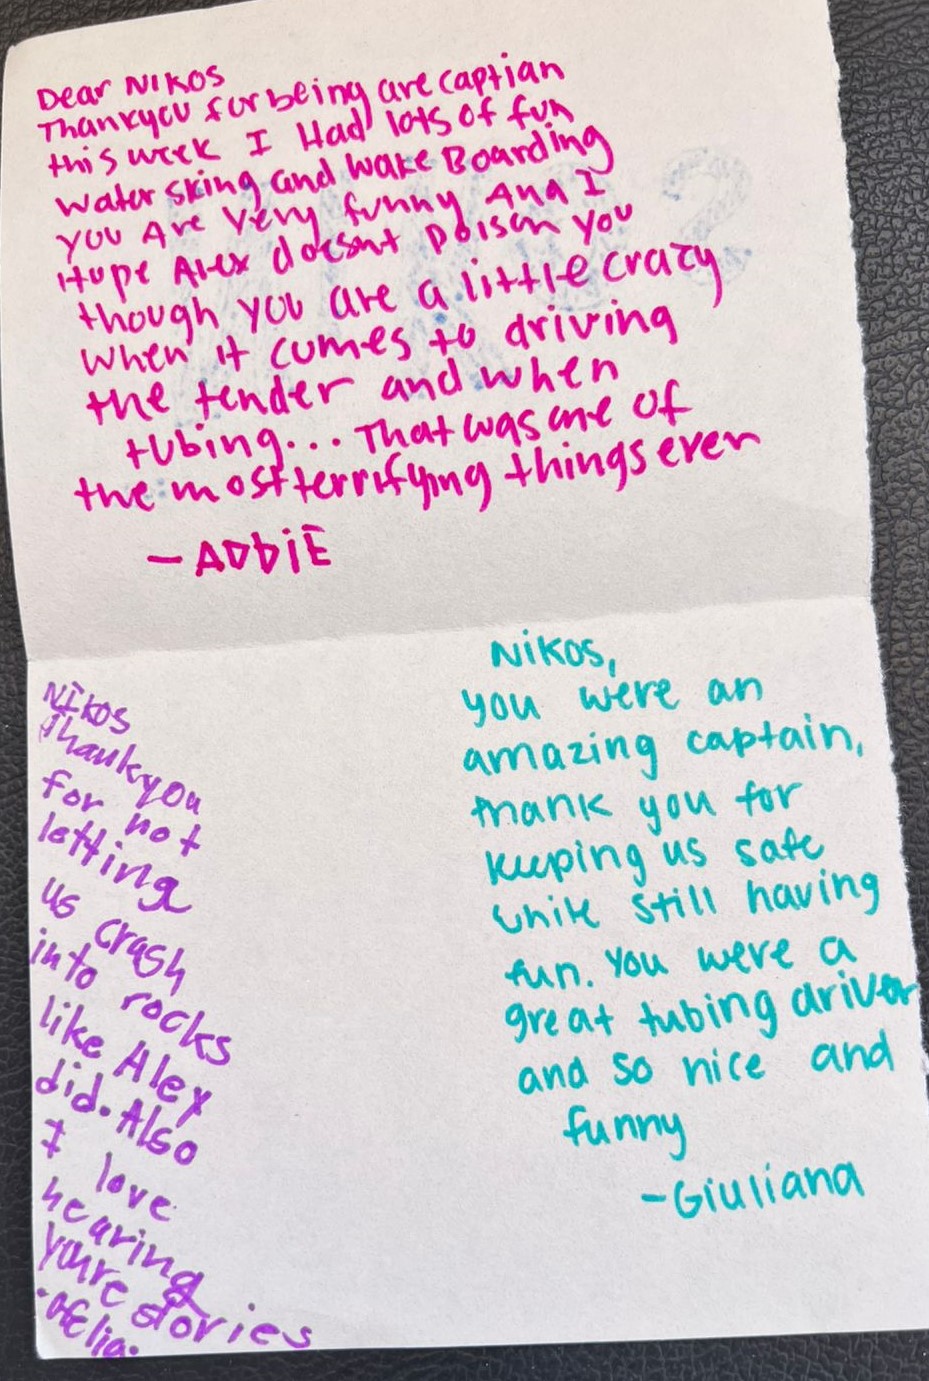 Dear NIKOS
Thankyou for being are captian
this week I Had lots of fun
water sking and wake Boarding
you Are very funny And I
Hope Alex doesnt poison you
though you are a little crazy
when it comes to driving
the tender and when
tubing... That was one of
the most terrifying things ever
- ADDIE
Nikos
thankyou
for not
letting
us crash
into rocks
like Alex
did. Also
I love
hearing
youre stories
Nikos,
you were an
amazing captain,
thank you for
keeping us safe
while still having
fun. You were a
great tubing driver
and so nice and
funny
-Giuliana